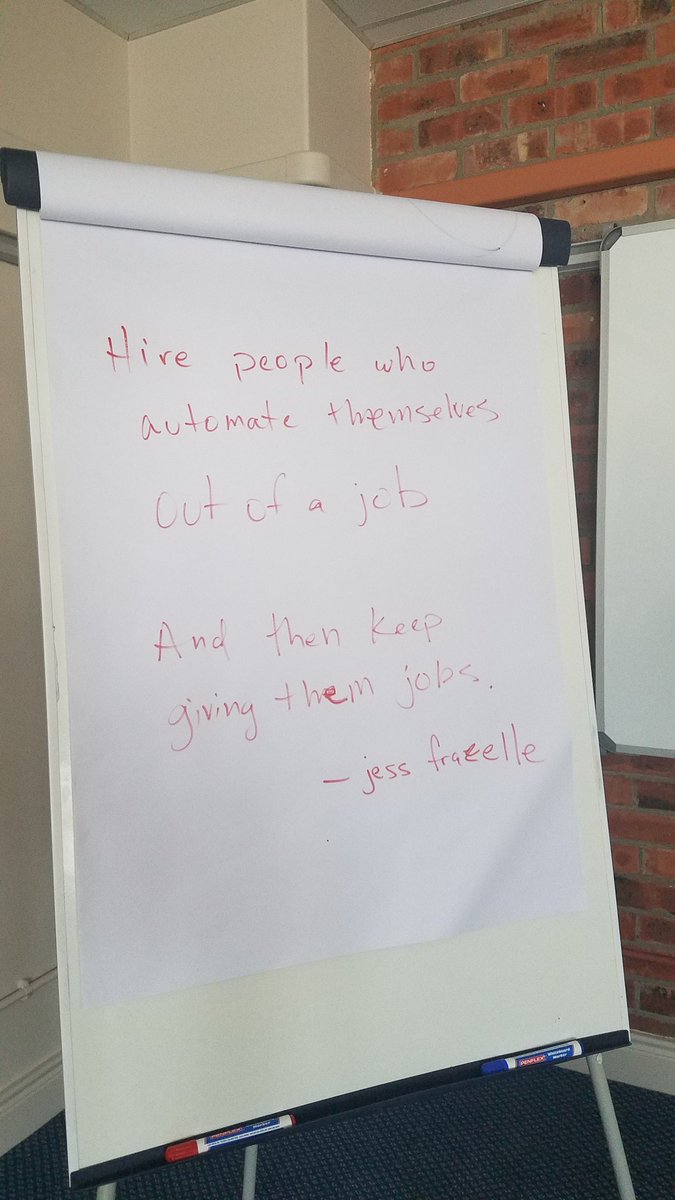 Hire people who
automate themselves
Out of a job
And then keep
giving them jobs.
- jess frazelle
PENFLEX Whiteboard Marker
PENFLEX Marker